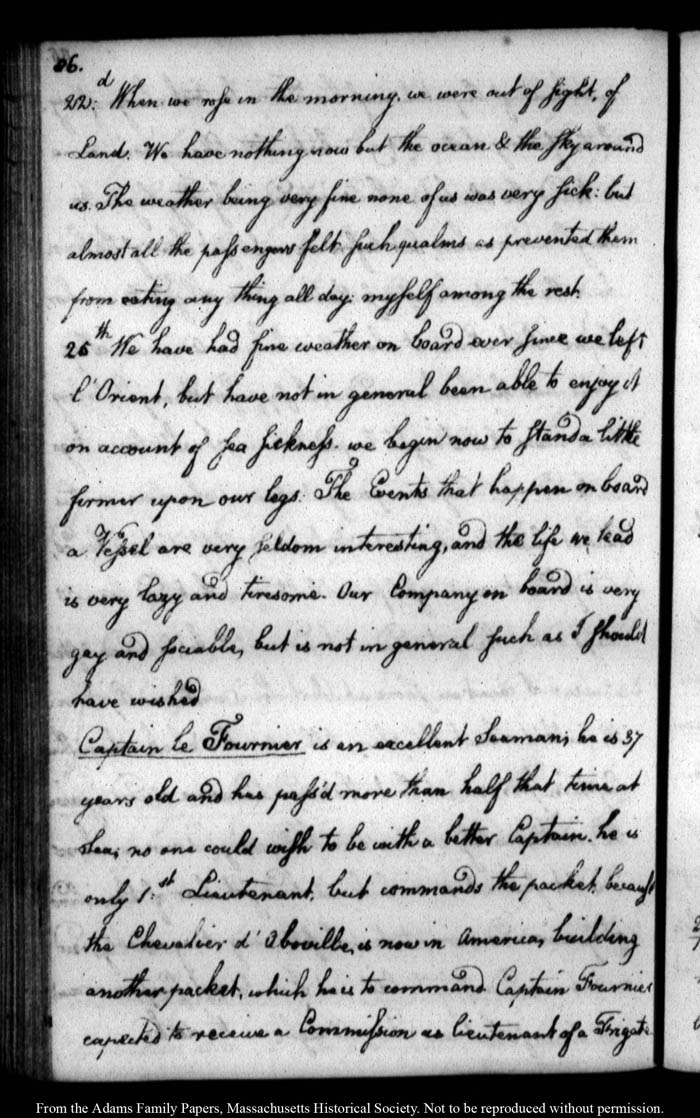 86.
22.d When we rose in the morning, we were out of sight, of
Land. We have nothing now but the ocean & the sky around
us. The weather being very fine none of us was very sick: but
almost all the passengers felt such qualms as prevented them
from eating any thing all day: myself among the rest.
25th We have had fine weather on board ever since we left
l'Orient, but have not in general been able to enjoy it
on account of sea sickness. we begin now to stand a little
firmer upon our legs. The Events that happen on board
a Vessel are very seldom interesting, and the life we lead
is very lazy and tiresome. Our Company on board is very
gay and sociable, but is not in general such as I should
have wished
Captain le Fournier is an excellent Seaman; he is 37
years old and has pass'd more than half that time at
Sea; no one could wish to be with a better Captain. he is
only 1.st Lieutenant, but commands the packet, because
the Chevalier d'Aboville, is now in America, building
another packet, which he is to command. Captain Fournier
expected to receive a Commission as lieutenant of a Frigate
From the Adams Family Papers, Massachusetts Historical Society. Not to be reproduced without permission.